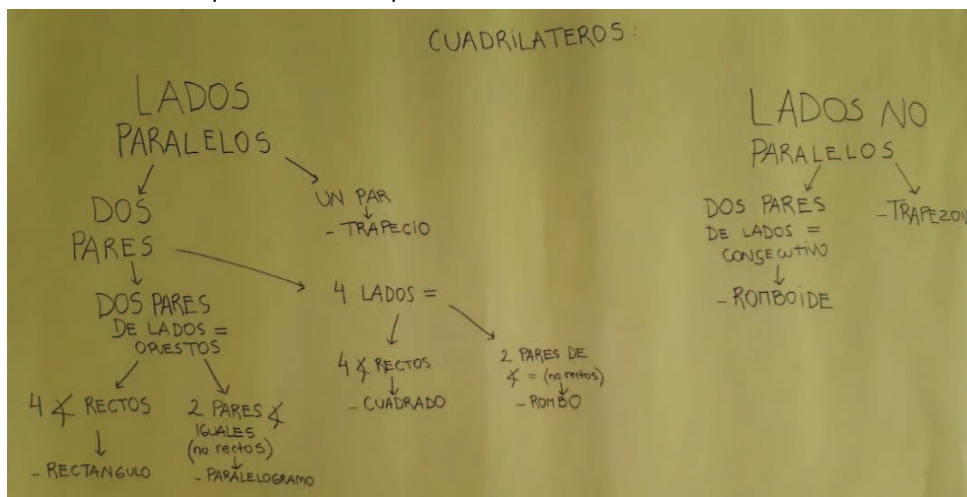 CUADRILATEROS:
LADOS
PARALELOS
DOS
PARES
UN PAR
- TRAPECIO
DOS PARES
DE LADOS =
OPUESTOS
4 ∡ RECTOS
- RECTANGULO
2 PARES ∡
IGUALES
(no rectos)
- PARALELOGRAMO
4 LADOS =
4 ∡ RECTOS
- CUADRADO
2 PARES DE
∡ = (no rectos)
- ROMBO
LADOS NO
PARALELOS
DOS PARES
DE LADOS =
CONSECUTIVO
- ROMBOIDE